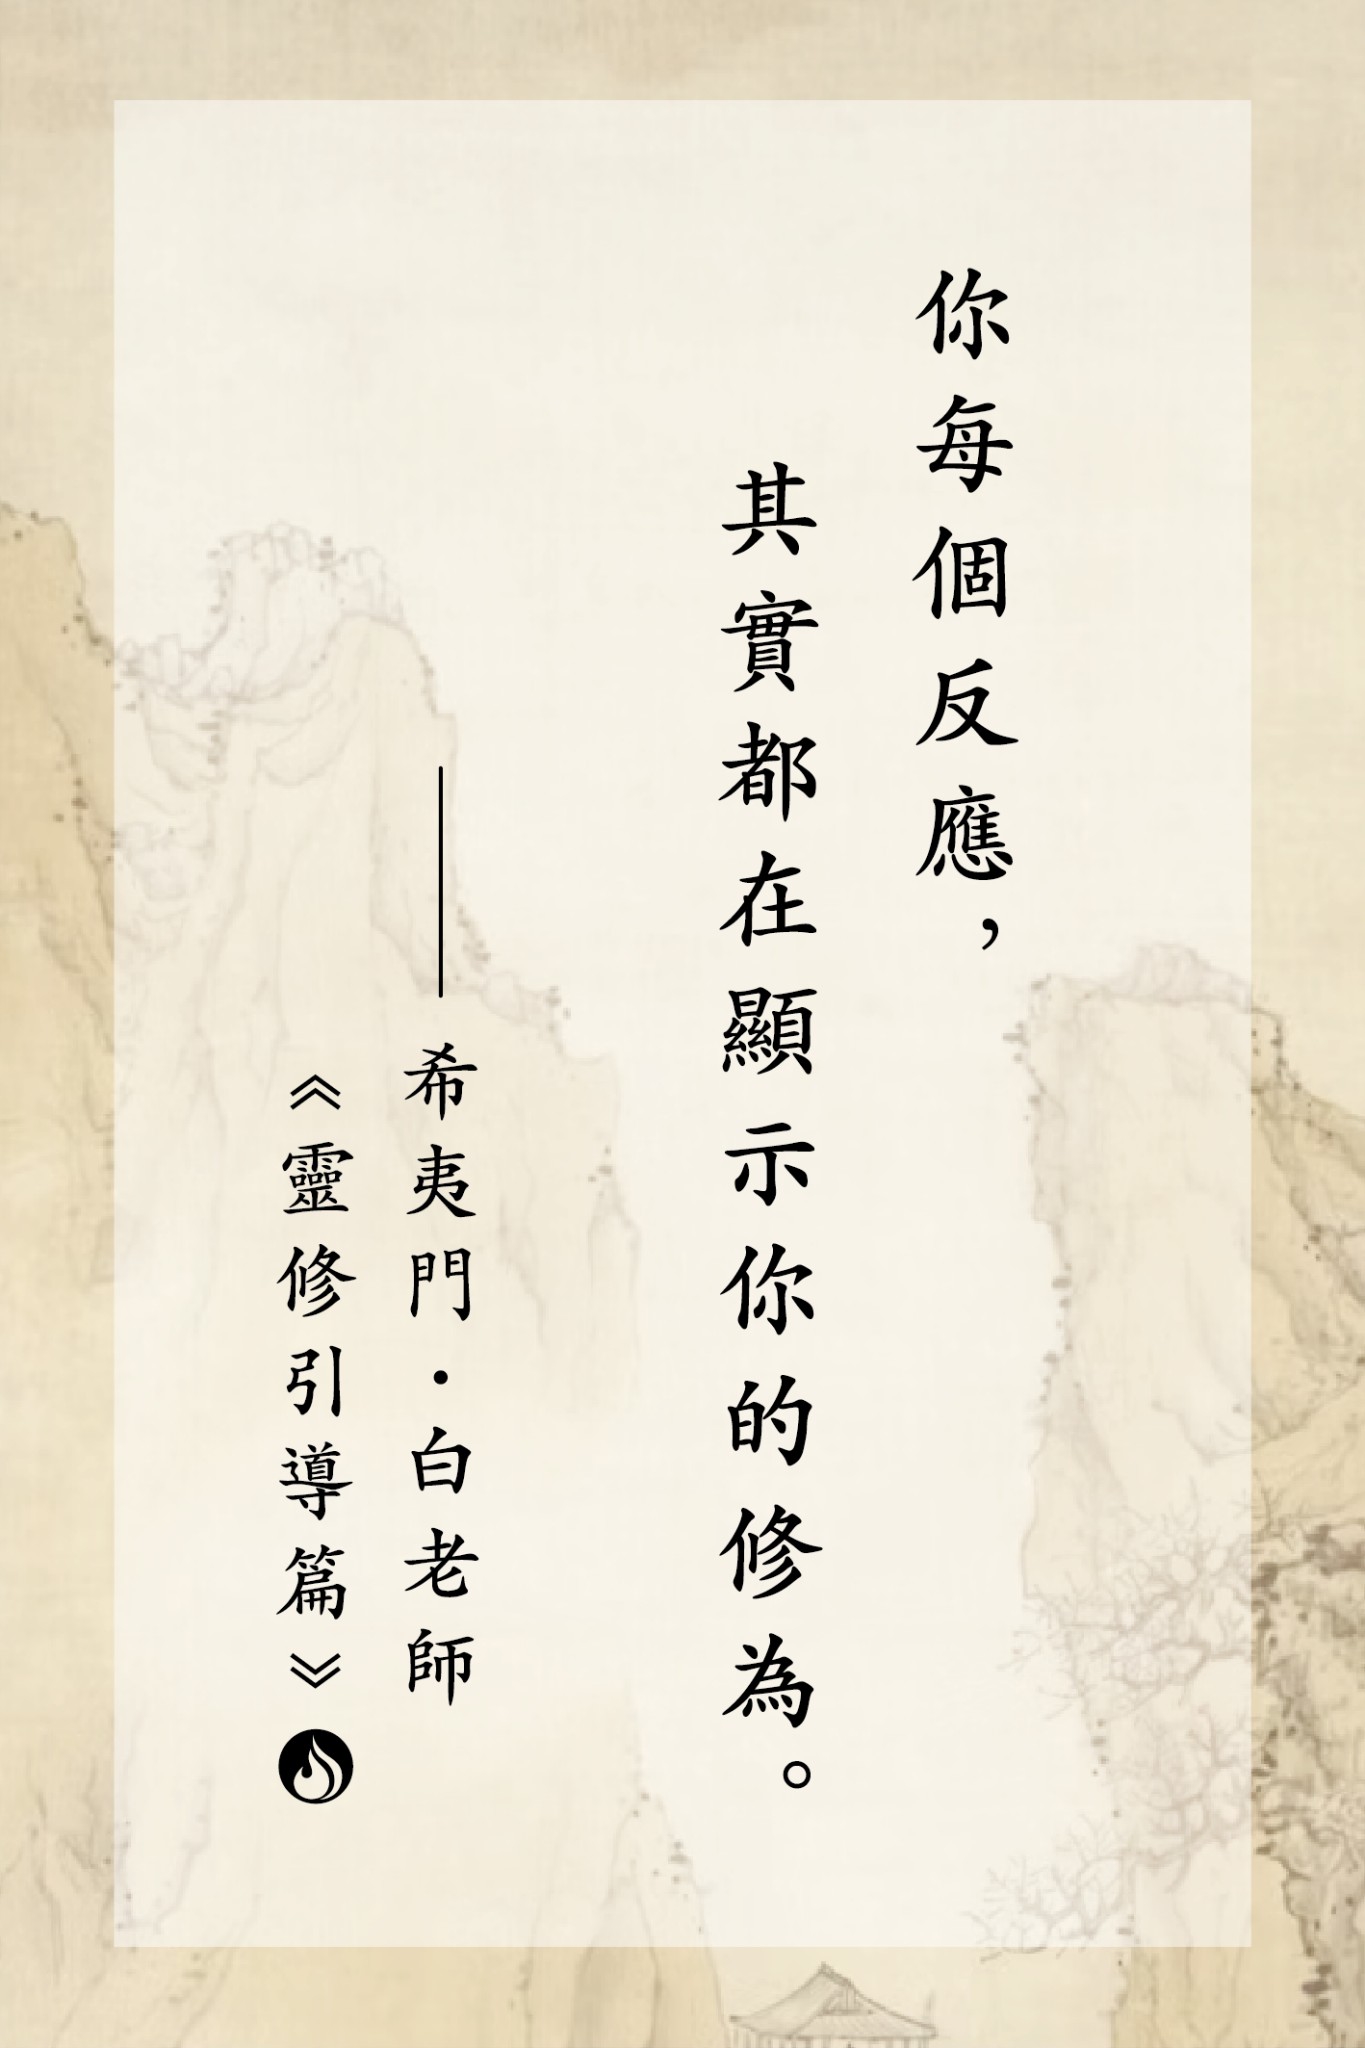 你每個反應，
其實都在顯示你的修為。
——希夷門·白老師
《靈修引導篇》